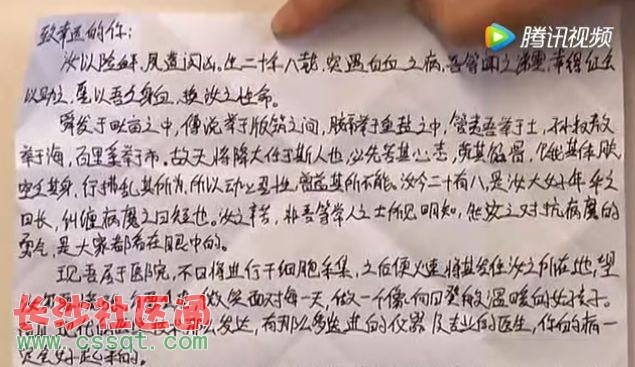 腾讯视频
致幸运的你：
汝以险衅，夙遭闵凶。生二十有八载，突遇白血之病，吾等闻之
以助之，愿以吾之身血，换汝之性命。
舜发于畎亩之中，傅说举于版筑之间，胶鬲举于鱼盐之中，管夷吾举于士，孙叔敖
举于海，百里奚举于市。故天将降大任于斯人也，必先苦其心志，劳其筋骨，饿其体肤
空乏其身，行拂乱其所为，所以动心忍性，曾益其所不能。汝今二十有八，是汝大好年华之
日长，纠缠病魔之日短也。汝之辛苦，非吾等常人之士所见明知，但汝之对抗病魔的
勇气，是大家都看在眼中的。
现吾居于医院，不日将进行干细胞采集，之后便火速将其发往汝之所在地，望
做笑面对每一天，做一个像向日葵般温暖的女孩子。
那么发达，有那么多先进的仪器及专业的医生，你的病一
定会好起来的。
长沙社区通
www.cssqt.com